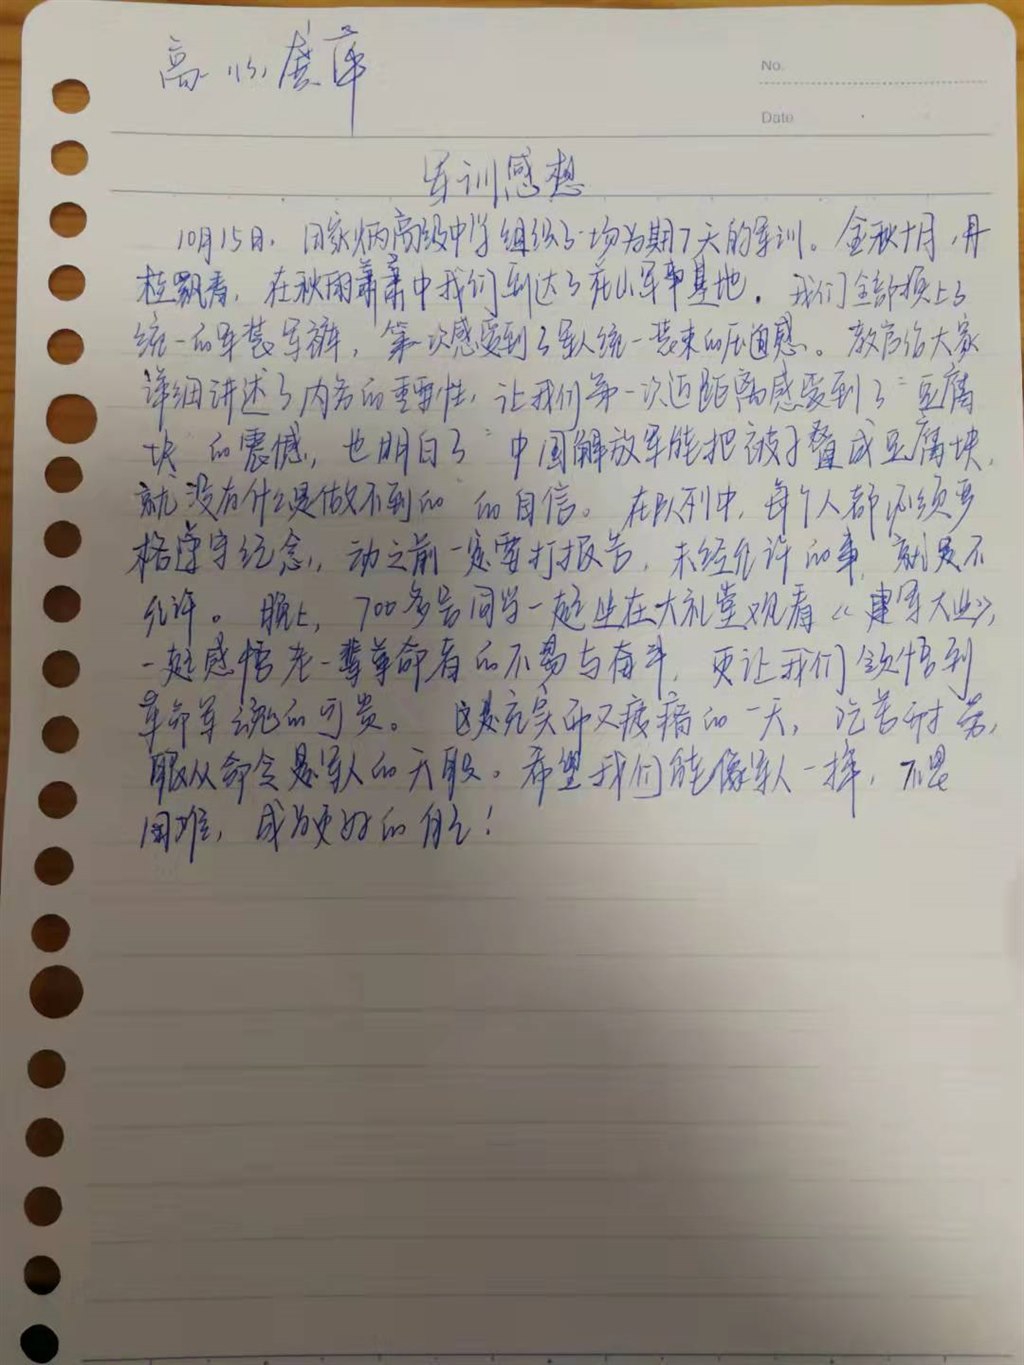 No.
Date
军训感想
10月15日，田家炳高级中学组织了一场为期7天的军训。金秋十月，丹
桂飘香，在秋雨萧萧中我们到达了 山军事基地。我们全部换上了
统一的军装军裤，第一次感受到了军人统一装束的压迫感。教官给大家
详细讲述了内务的重要性，让我们第一次近距离感受到了“豆腐
块”的震撼，也明白了“中国解放军能把被子叠成豆腐块，
就没有什么是做不到的”的自信。在队列中，每个人都必须严
格遵守纪念，动之前一定要打报告，未经允许的事，就是不
允许。晚上，700多名同学一起坐在大礼堂观看《建军大业》，
一起感悟老一辈革命者的不易与奋斗，更让我们领悟到
革命军魂的可贵。这是充实而又疲痛的一天，吃苦耐劳，
服从命令是军人的天职。希望我们能像军人一样，不畏
困难，成为更好的自己！